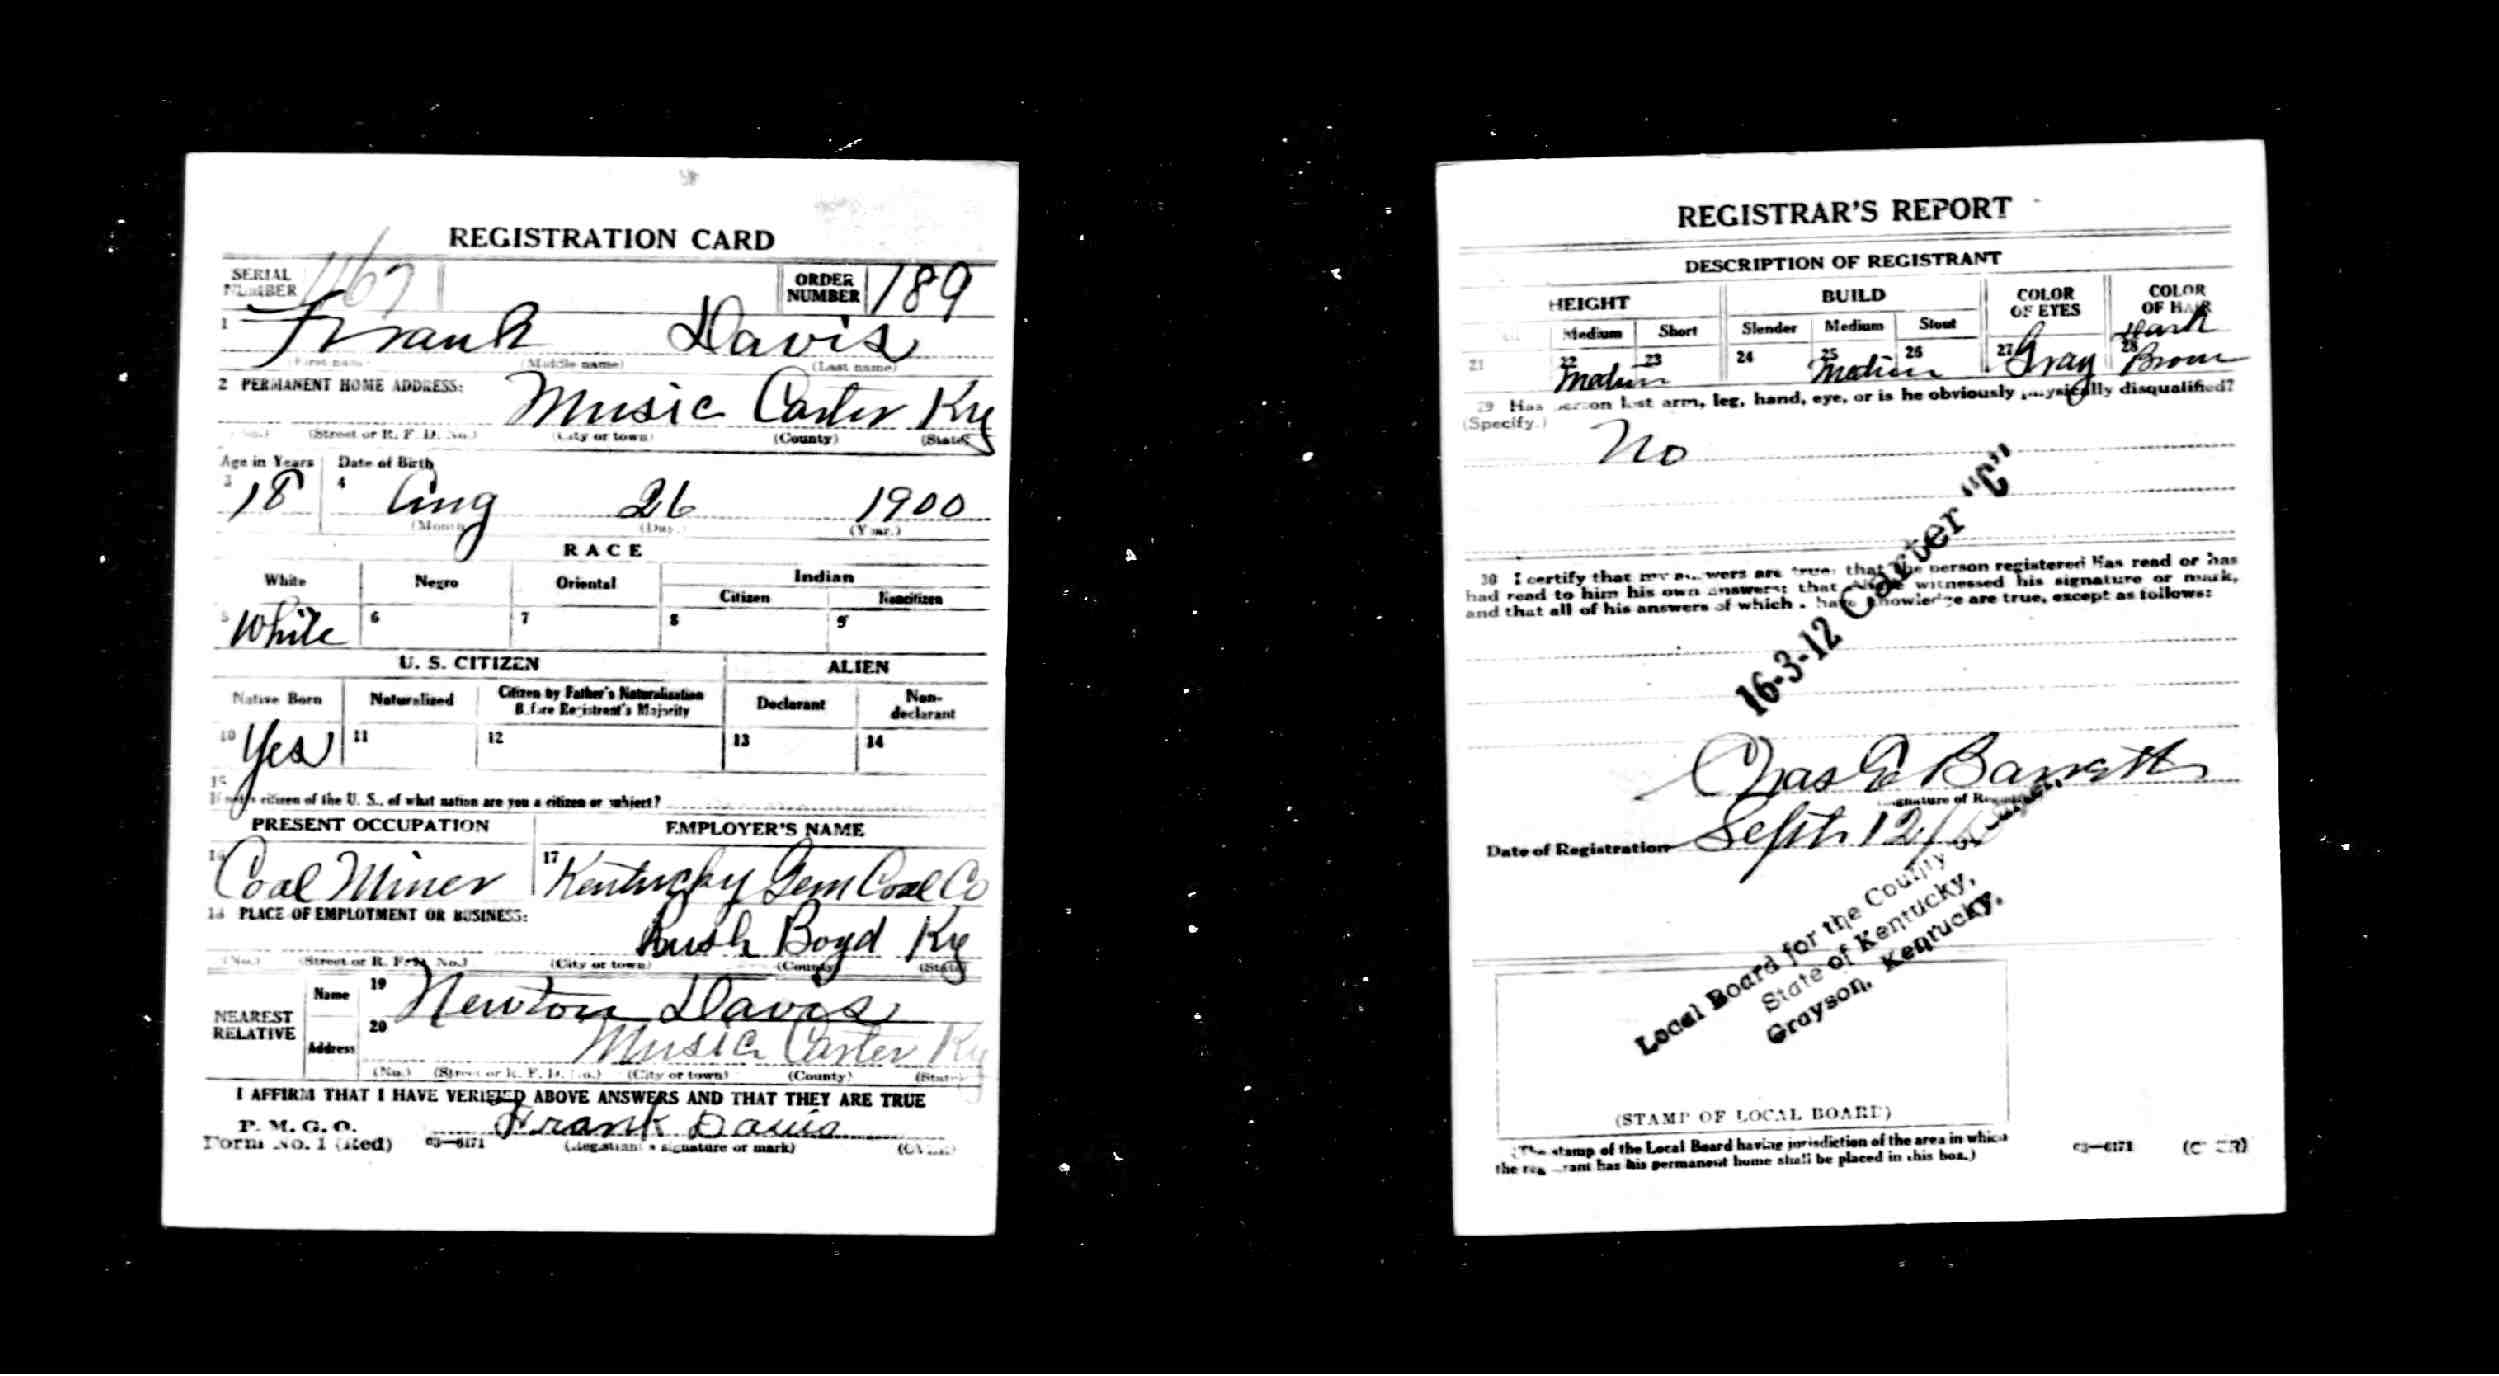 REGISTRATION CARD
SERIAL NUMBER
ORDER NUMBER 189
1 Frank Davis
(First name) (Middle name) (Last name)
2 PERMANENT HOME ADDRESS:
Music Carter Ky
(No.) (Street or R. F. D. No.) (City or town) (County) (State)
Age in Years Date of Birth
3 18 4 Aug 26 1900
(Month) (Day.) (Year.)
RACE
White Negro Oriental Indian
Citizen Noncitizen
5 White 6 7 8 9
U. S. CITIZEN ALIEN
Native Born Naturalized Citizen by Father's Naturalization Before Registrant's Majority Declarant Non-declarant
10 Yes 11 12 13 14
15
If not a citizen of the U. S., of what nation are you a citizen or subject?
PRESENT OCCUPATION EMPLOYER'S NAME
16 Coal Miner 17 Kentucky Gem Coal Co
18 PLACE OF EMPLOYMENT OR BUSINESS:
Rush Boyd Ky
(No.) (Street or R. F. D. No.) (City or town) (County) (State)
NEAREST RELATIVE
Name 19 Newton Davis
Address 20 Music Carter Ky
(No.) (Street or R. F. D. No.) (City or town) (County) (State)
I AFFIRM THAT I HAVE VERIFIED ABOVE ANSWERS AND THAT THEY ARE TRUE
P. M. G. O.
Form No. 1 (Red) 03—6171 Frank Davis
(Registrant's signature or mark) (OVER)
REGISTRAR'S REPORT
DESCRIPTION OF REGISTRANT
HEIGHT BUILD COLOR OF EYES COLOR OF HAIR
Medium Short Slender Medium Stout
21 22 Medium 23 24 25 Medium 26 27 Gray 28 Dark Brown
29 Has person lost arm, leg, hand, eye, or is he obviously physically disqualified?
(Specify.)
No
30 I certify that my answers are true; that the person registered has read or has
had read to him his own answers; that witnessed his signature or mark,
and that all of his answers of which I have knowledge are true, except as follows:
16-3-12 Carter "C"
Chas
(Signature of Registrar)
Date of Registration Sept. 12
Local Board for the County of Carter,
State of Kentucky,
Grayson, Kentucky.
(STAMP OF LOCAL BOARD)
(The stamp of the Local Board having jurisdiction of the area in which
the registrant has his permanent home shall be placed in this box.)
03—6171 (OVER)